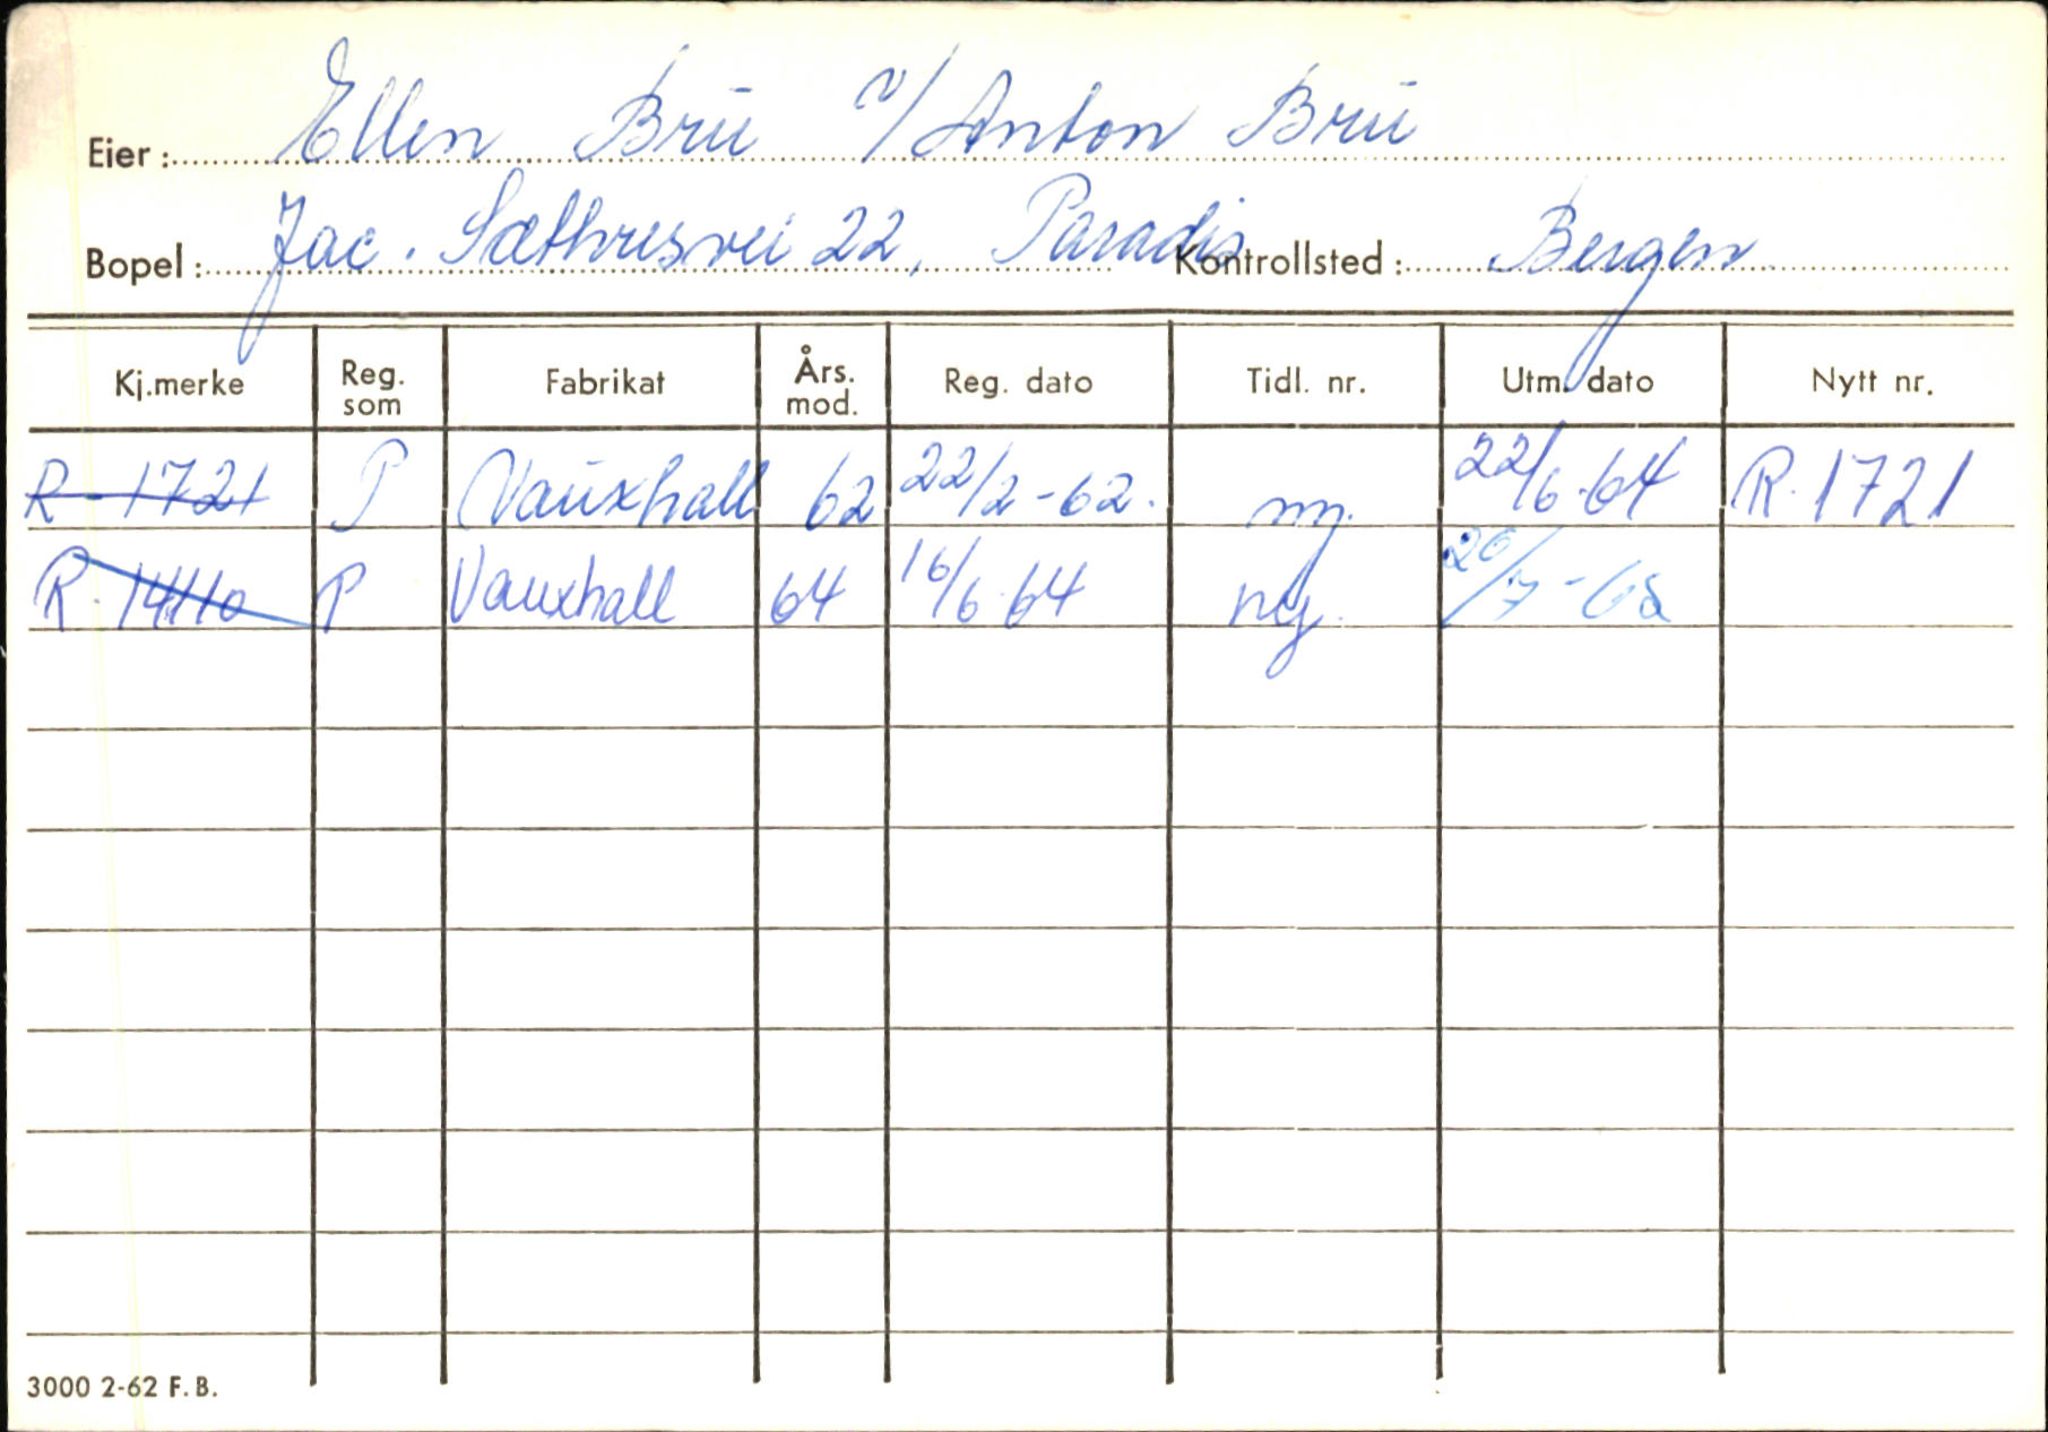 Eier: Ellen Brü v/ Anton Brü
Bopel: Jac. Sæthresvei 22, Paradis Kontrollsted: Bergen
Kj.merke Reg. som Fabrikat Års. mod. Reg. dato Tidl. nr. Utm. dato Nytt nr.
R-1721 P Vauxhall 62 22/2-62. ny. 22/6-64 R.1721
R. P Vauxhall 64 16/6-64 ny.
3000 2-62 F.B.